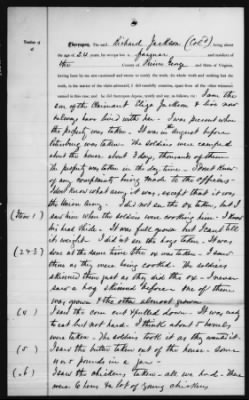 Number of
Thereupon, The said Richard Jackson (Col'd) being about
the age of 24 years, by occupation a farmer and resident of
the County of Prince George and State of Virginia,
having been by me first cautioned and sworn to testify the truth, the whole truth and nothing but the
truth, in the matter in the claim aforesaid, I did carefully examine, apart from all the other witnesses
named in this case, and he did thereupon depose, testify and say, as follows, viz: I am the
son of the Claimant Eliza Jackson & live now
& always have lived with her - I was present when
the property was taken. It was in the August before
Petersburg was taken. The soldiers were camped
about the house about 3 days, thousands of them -
The property was taken in the day time - I don't know
of any complaints being made to the officers -
I don't know what army it was, except that it was
the Union Army.
(Item 1) I did not see the ox taken, but I
saw him when the soldiers were cooking him - I knew
his head & hide - It was full grown but I can't tell
its weight -
(2 & 3) I did not see the hogs taken. It was
done at the same time the ox was taken. I saw
them as they were being cooked. The soldiers
skinned them just as they did the ox - I never
saw a hog skinned before - One of them
was grown & the other almost grown
(4) I saw the corn cut & pulled down. It was ready
to eat but not hard. I think about 5 barrels
were taken. The soldiers took it as they wanted it.
(5) I saw the butter taken out of the house - some
pounds in a jar -
(6) I saw the chickens taken - all we had - There
were 6 hens & a lot of young chickens